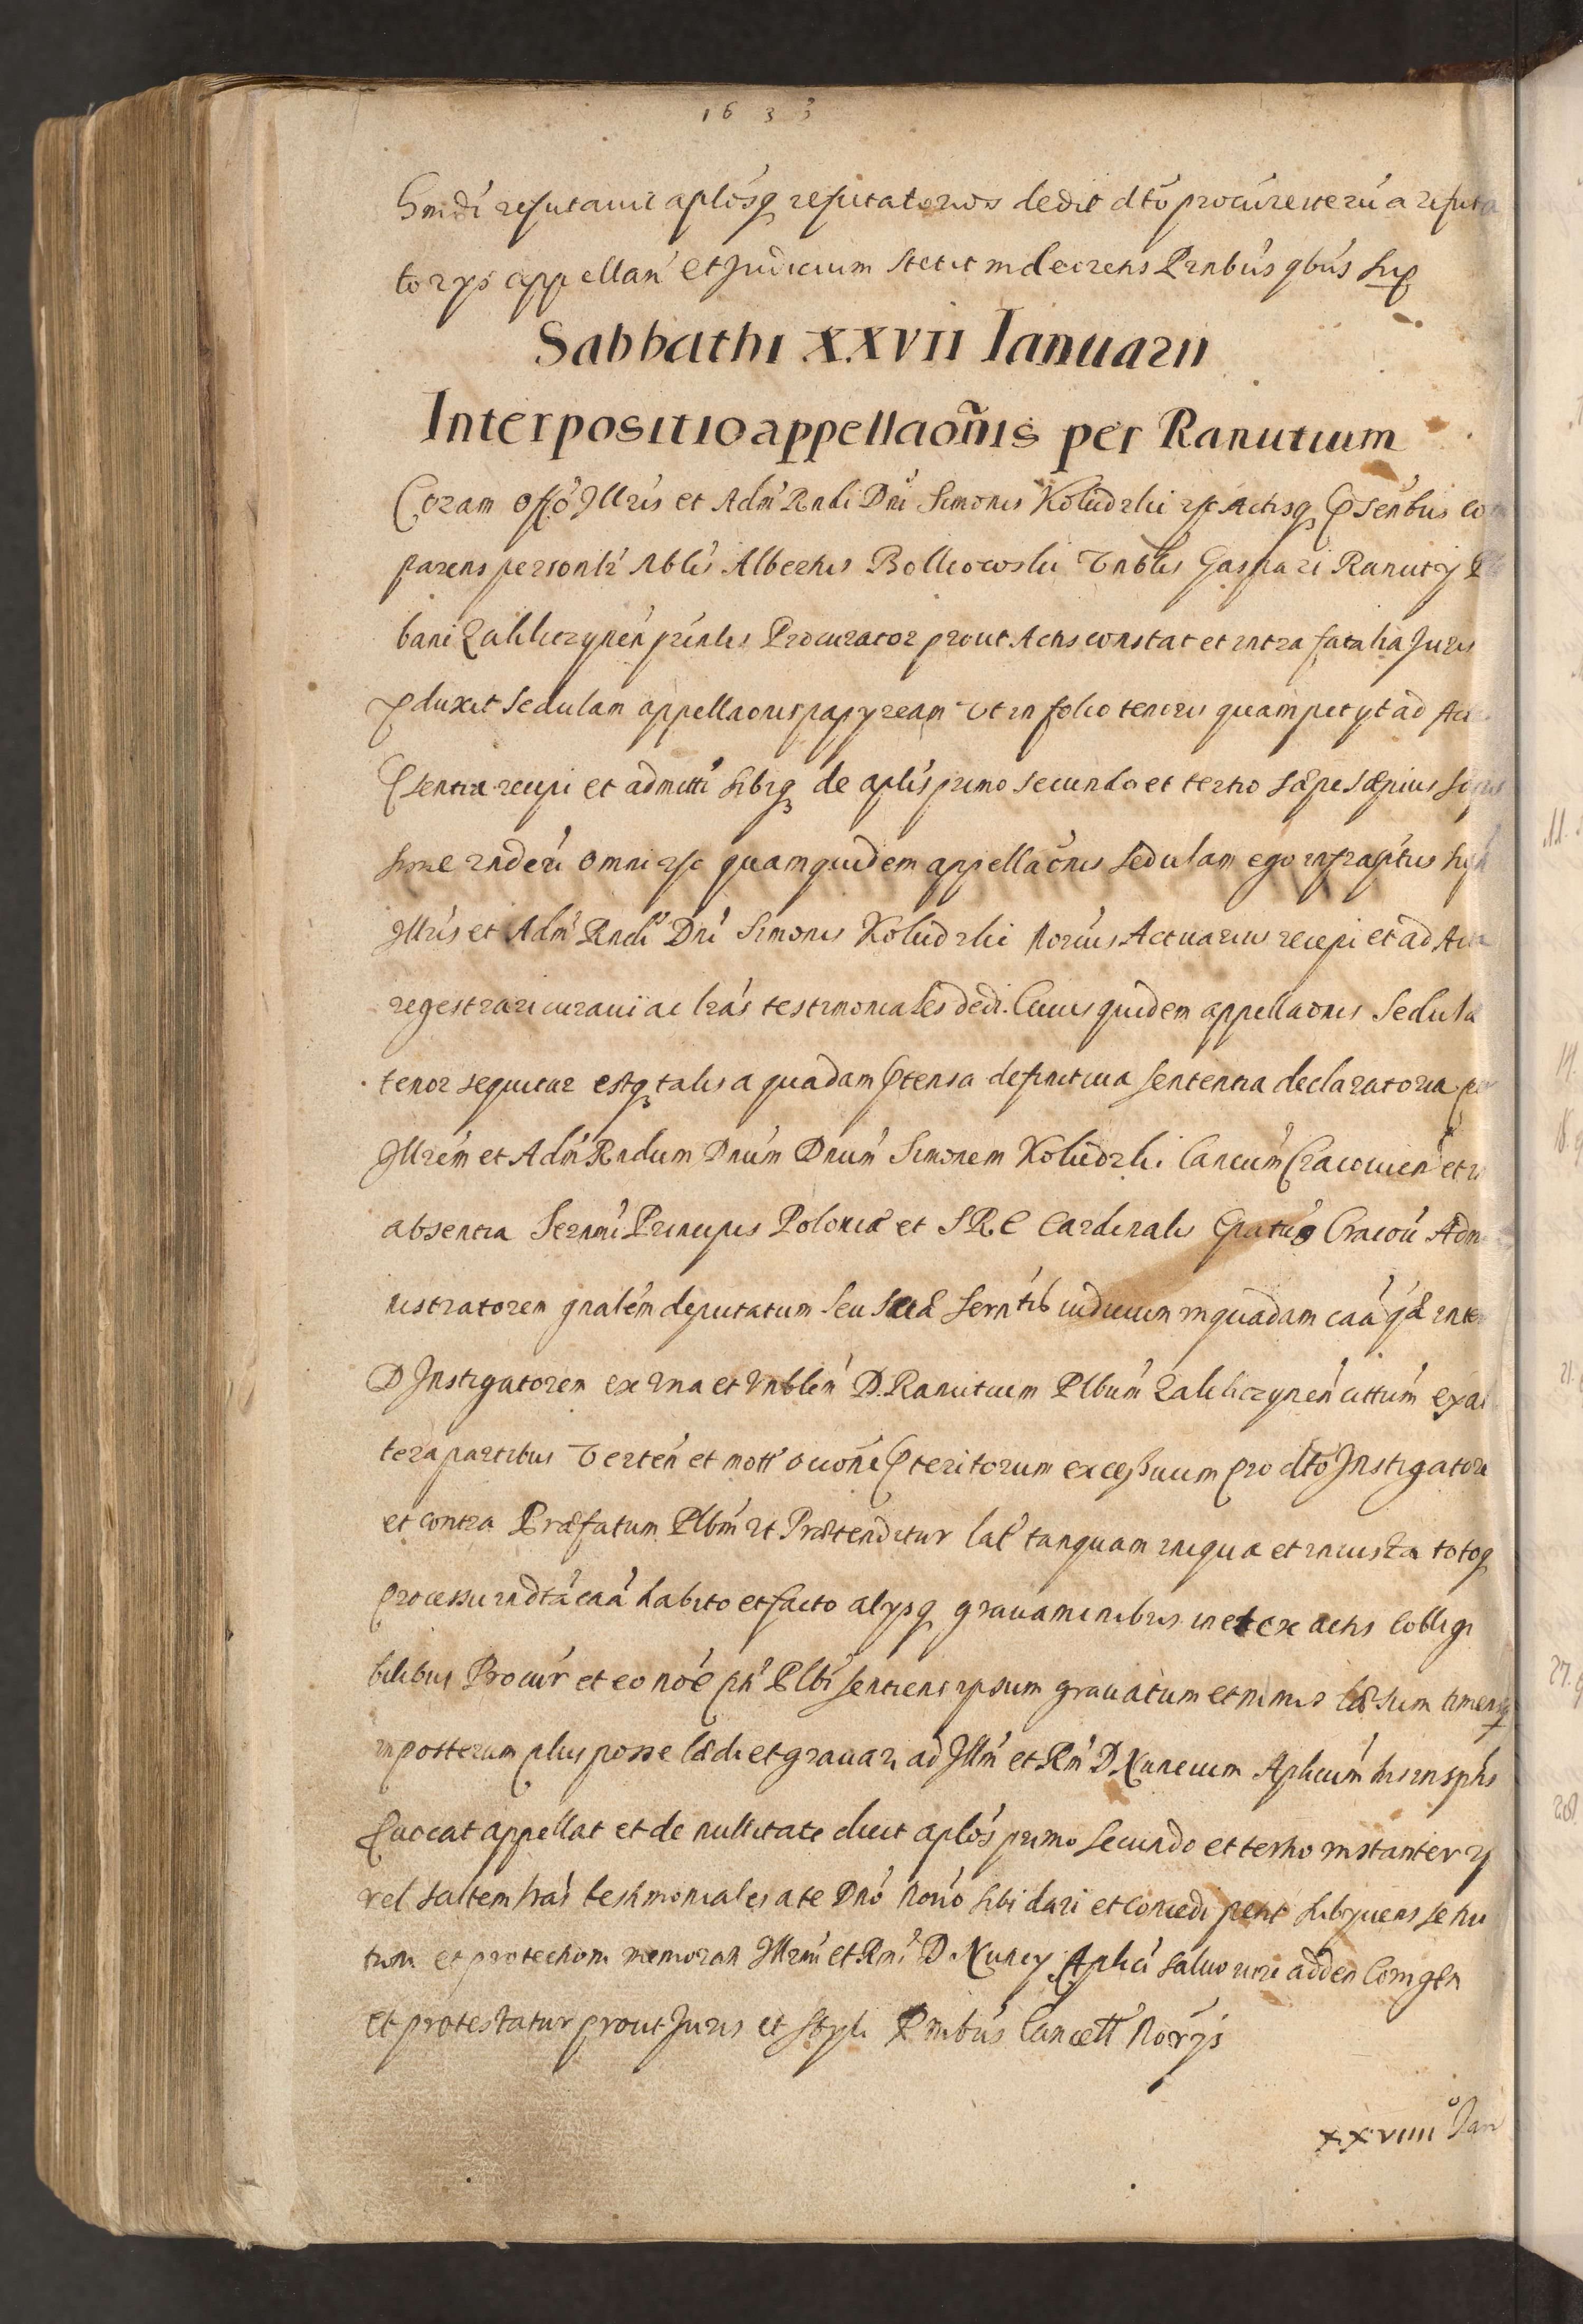 1633
hmdi refutavit aplosq refutatorios dedit dto procure iteru a refuta
torys appellan et Judicium stetit in decretis Pntbus qbus sup
Sabbathi XXVII Ianuarii
Interpositio appellaonis per Ranutium
Coram offo Jllris et Adm Rndi Dni Simonis Koludzki etc Actisq psentbus com
parens personlr Nblis Albertus Bolkowski Vnblis Gaspari Ranuty Ple
bani Zakliczynen pnlis Procurator prout Actis constat et intra fatalia Juris
pduxit sedulam appellaonis papyream Vt in folio tenoris quam petyt ad Acta
psentia recipi et admitti sibiq de aplis primo secundo et tertio sæpe sæpius
sime rnderi omni etc quam quidem appellaonis sedulam ego infraptus
Jllris et Adm Rndi Dni Simonis Koludzki Norius Actuarius recepi et ad Acta
regestrari curavi ac lras testimoniales dedi. Cuius quidem appellaonis Sedula
tenor sequitur estq talis a quadam ptensa definitiva sententia declaratoria per
Jllrem et Adm Rndum Dnum Dnum Simonem Koludzki Cancum Cracovien et in
absentia Sernmi Principis Poloniæ et S R E Cardinalis Epatus Cracov Admi
nistratorem gnalem deputatum seu suæ Sernttis iudicium in quadam caa quæ inter
D Jnstigatorem ex vna et Vnblem D. Ranutium Plbum Zakliczynen cittum ex al
tera partibus Verten et mott oconé pteritorum excessuum pro dto Jnstigatore
et contra Præfatum Plbm vt Prætenditur lat tanquam iniqua et iniusta totoq
processu in dta caa habito et facto alysq gravaminibus in et ex actis collegi
bilibus Procur et eo noé pti Plbi sentiens ipsum gravatum et nimis læsum timensq
in posterum plus posse lædi et gravari ad Jllm et Rm D Nuncium Aplicum his in sptis
pvocat appellat et de nullitate dicit aplos primo secundo et tertio instanter
vel saltem lras testimoniales a te Dno Norio sibi dari et concedi petit subyciens se tui
tioni et protectioni memorati Jllrmi et Rmi D. Nuncy Aplici salvo iure adden Corrigen
et protestatur prout Juris et styli Pntibus Cancell Norys
xxviiiiº Jan